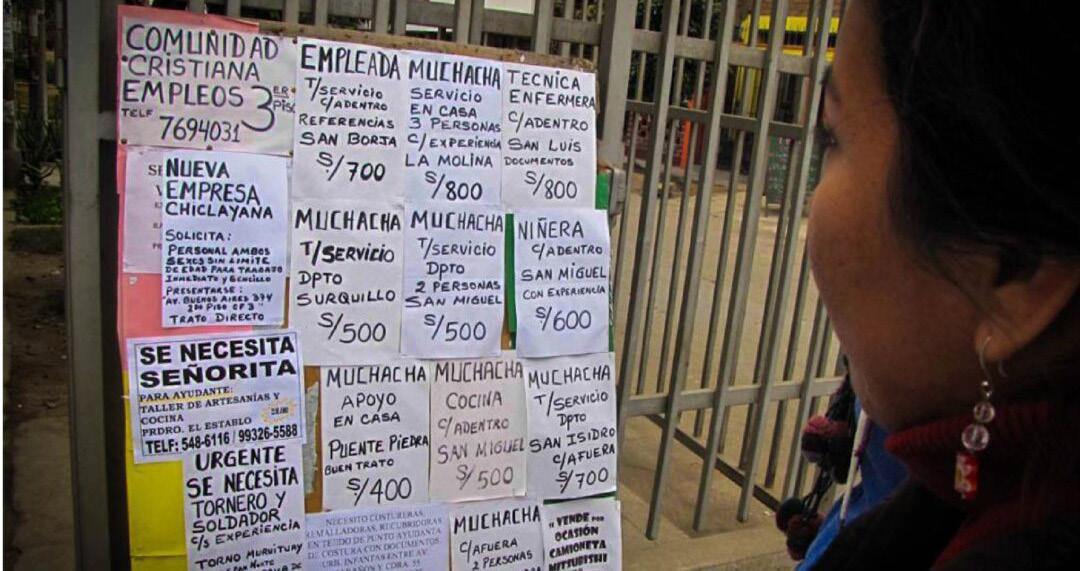 COMUNIDAD
CRISTIANA
EMPLEOS 3ER
PISO
TELF
7694031
EMPLEADA
T/SERVICIO
C/ADENTRO
REFERENCIAS
SAN BORJA
S/700
MUCHACHA
SERVICIO
EN CASA
3 PERSONAS
C/EXPERIENCIA
LA MOLINA
S/800
TECNICA
ENFERMERA
C/ADENTRO
SAN LUIS
DOCUMENTOS
S/800
NUEVA
EMPRESA
CHICLAYANA
SOLICITA:
PERSONAL AMBOS
SEXOS SIN LIMITE
DE EDAD PARA TRABAJO
INMEDIATO Y SENCILLO
PRESENTARSE:
"AV. BUENOS AIRES 374
2DO PISO OF 3"
TRATO DIRECTO
MUCHACHA
T/SERVICIO
DPTO
SURQUILLO
S/500
MUCHACHA
T/SERVICIO
DPTO
2 PERSONAS
SAN MIGUEL
S/500
NIÑERA
C/ADENTRO
SAN MIGUEL
CON EXPERIENCIA
S/600
SE NECESITA
SEÑORITA
PARA AYUDANTE:
TALLER DE ARTESANÍAS Y
COCINA
PRDRO. EL ESTABLO
TELF: 548-6116 / 99326-5588
MUCHACHA
APOYO
EN CASA
PUENTE PIEDRA
BUEN TRATO
S/400
MUCHACHA
COCINA
C/ADENTRO
SAN MIGUEL
S/500
MUCHACHA
T/SERVICIO
DPTO
SAN ISIDRO
C/AFUERA
S/700
URGENTE
SE NECESITA
TORNERO Y
SOLDADOR
C/S EXPERIENCIA
TORNO MURUITUAY
NECESITO COSTURERAS,
REMALLADORAS, RECUBRIDORAS
EN TEJIDO DE PUNTO AYUDANTA
DE COSTURA CON DOCUMENTOS
URB. INFANTAS ENTRE AV.
MUCHACHA
C/AFUERA
2 PERSONAS
VENDE POR
OCASIÓN
CAMIONETA
MITSUBISHI